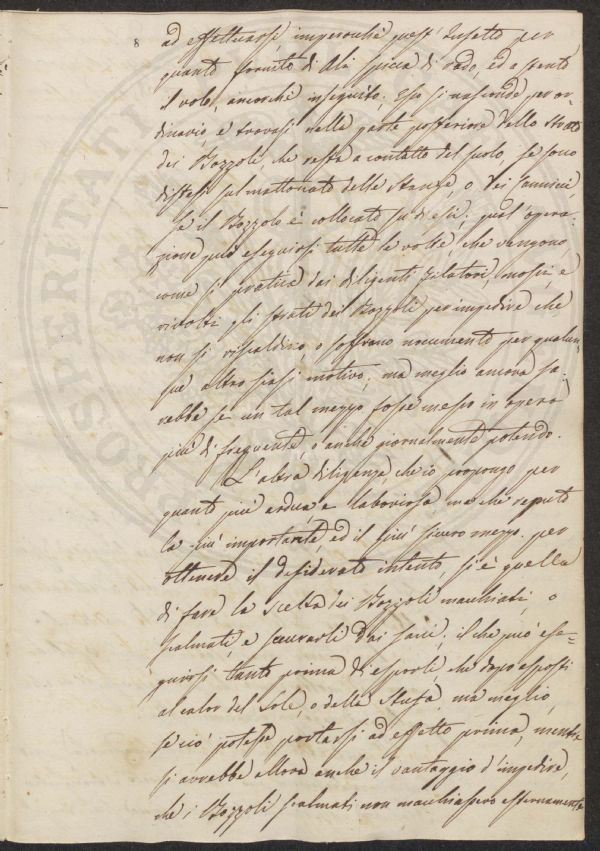 8
ad effettuarsi imperocchè quest' Insetto per
quanto fornito di Ali spicca di rado, ed a stento
il volo, ancorchè inseguito. Esso si nasconde per or-
dinario, e trovasi nella parte posteriore dello strato
dei Bozzoli, che resta a contatto del suolo, se sono
distesi sul mattonato delle Stanze, o dei Cannicci
se il Bozzolo è collocato su di essi; quest' opera-
zione può eseguirsi tutte le volte, che vengono,
come si pratica dai diligenti Filatori, mossi, e
rivolti gli strati dei Bozzoli per impedire che
non si riscaldino, o soffrano nocumento per qualun-
que altro siasi motivo; ma meglio ancora sa-
rebbe se un tal mezzo fosse messo in opera
più di frequente, o anche giornalmente potendo.
L'altra diligenza, che io propongo per
quanto più ardua, e laboriosa ma che reputo
la più importante, ed il più sicuro mezzo per
ottenere il desiderato intento, si è quella
di fare la scelta dei Bozzoli macchiati, o
scalmati, e scevrarli dai sani; il che può ese=
guirsi tanto prima di esporli, che dopo esposti
al calor del Sole, o della Stufa, ma meglio,
se ciò potesse portarsi ad effetto prima, mentre
si avrebbe allora anche il vantaggio d'impedire,
che i Bozzoli scalmati non macchiassero esternamente
PROSPERITATI